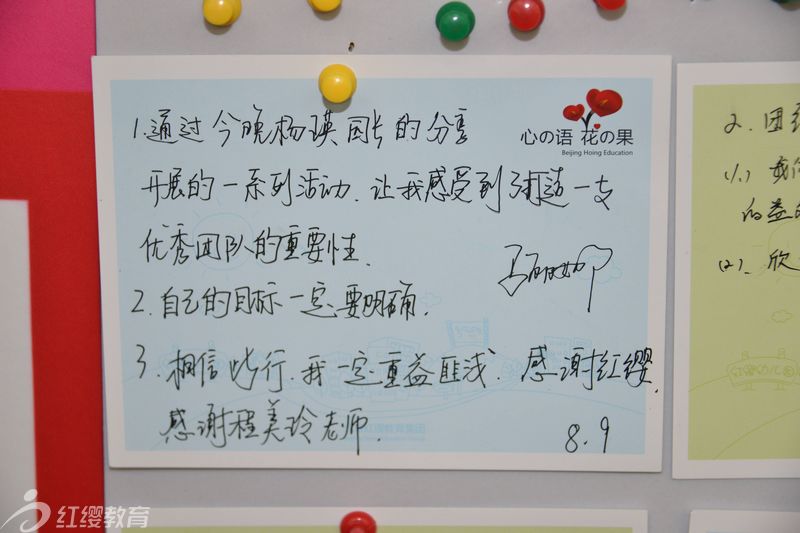 心の语 花の果
Beijing Hoing Education
1.通过今晚杨瑛园长的分享
开展的一系列活动.让我感受到打造一支
优秀团队的重要性.
2.自己的目标一定要明确.
3.相信此行.我一定重益匪浅.感谢红缨.
感谢程美玲老师.
8.9
2.团
(1.)
的益
(2).欣
红缨教育